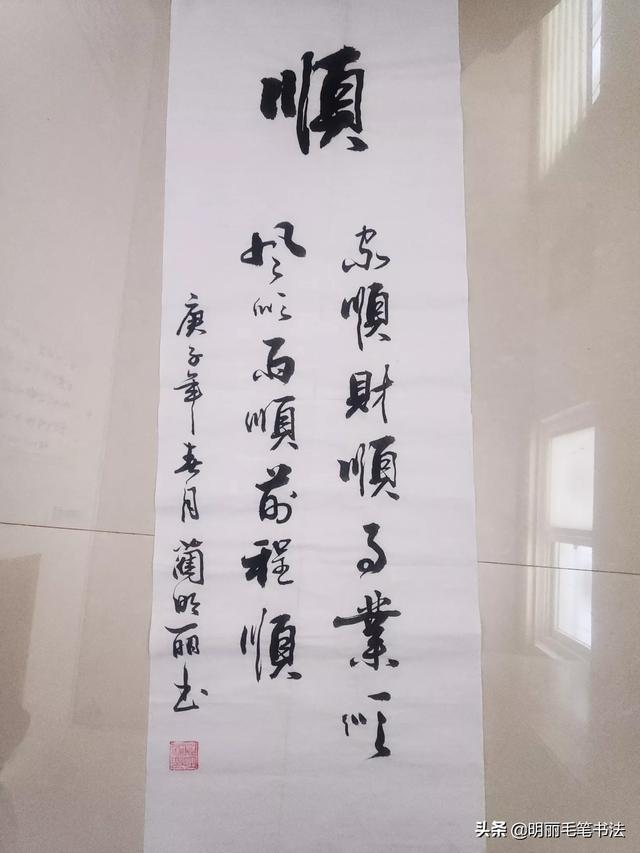 順
家順財順事業順
風順雨順前程順
庚子年春月蘭明丽书
头条 @明丽毛笔书法